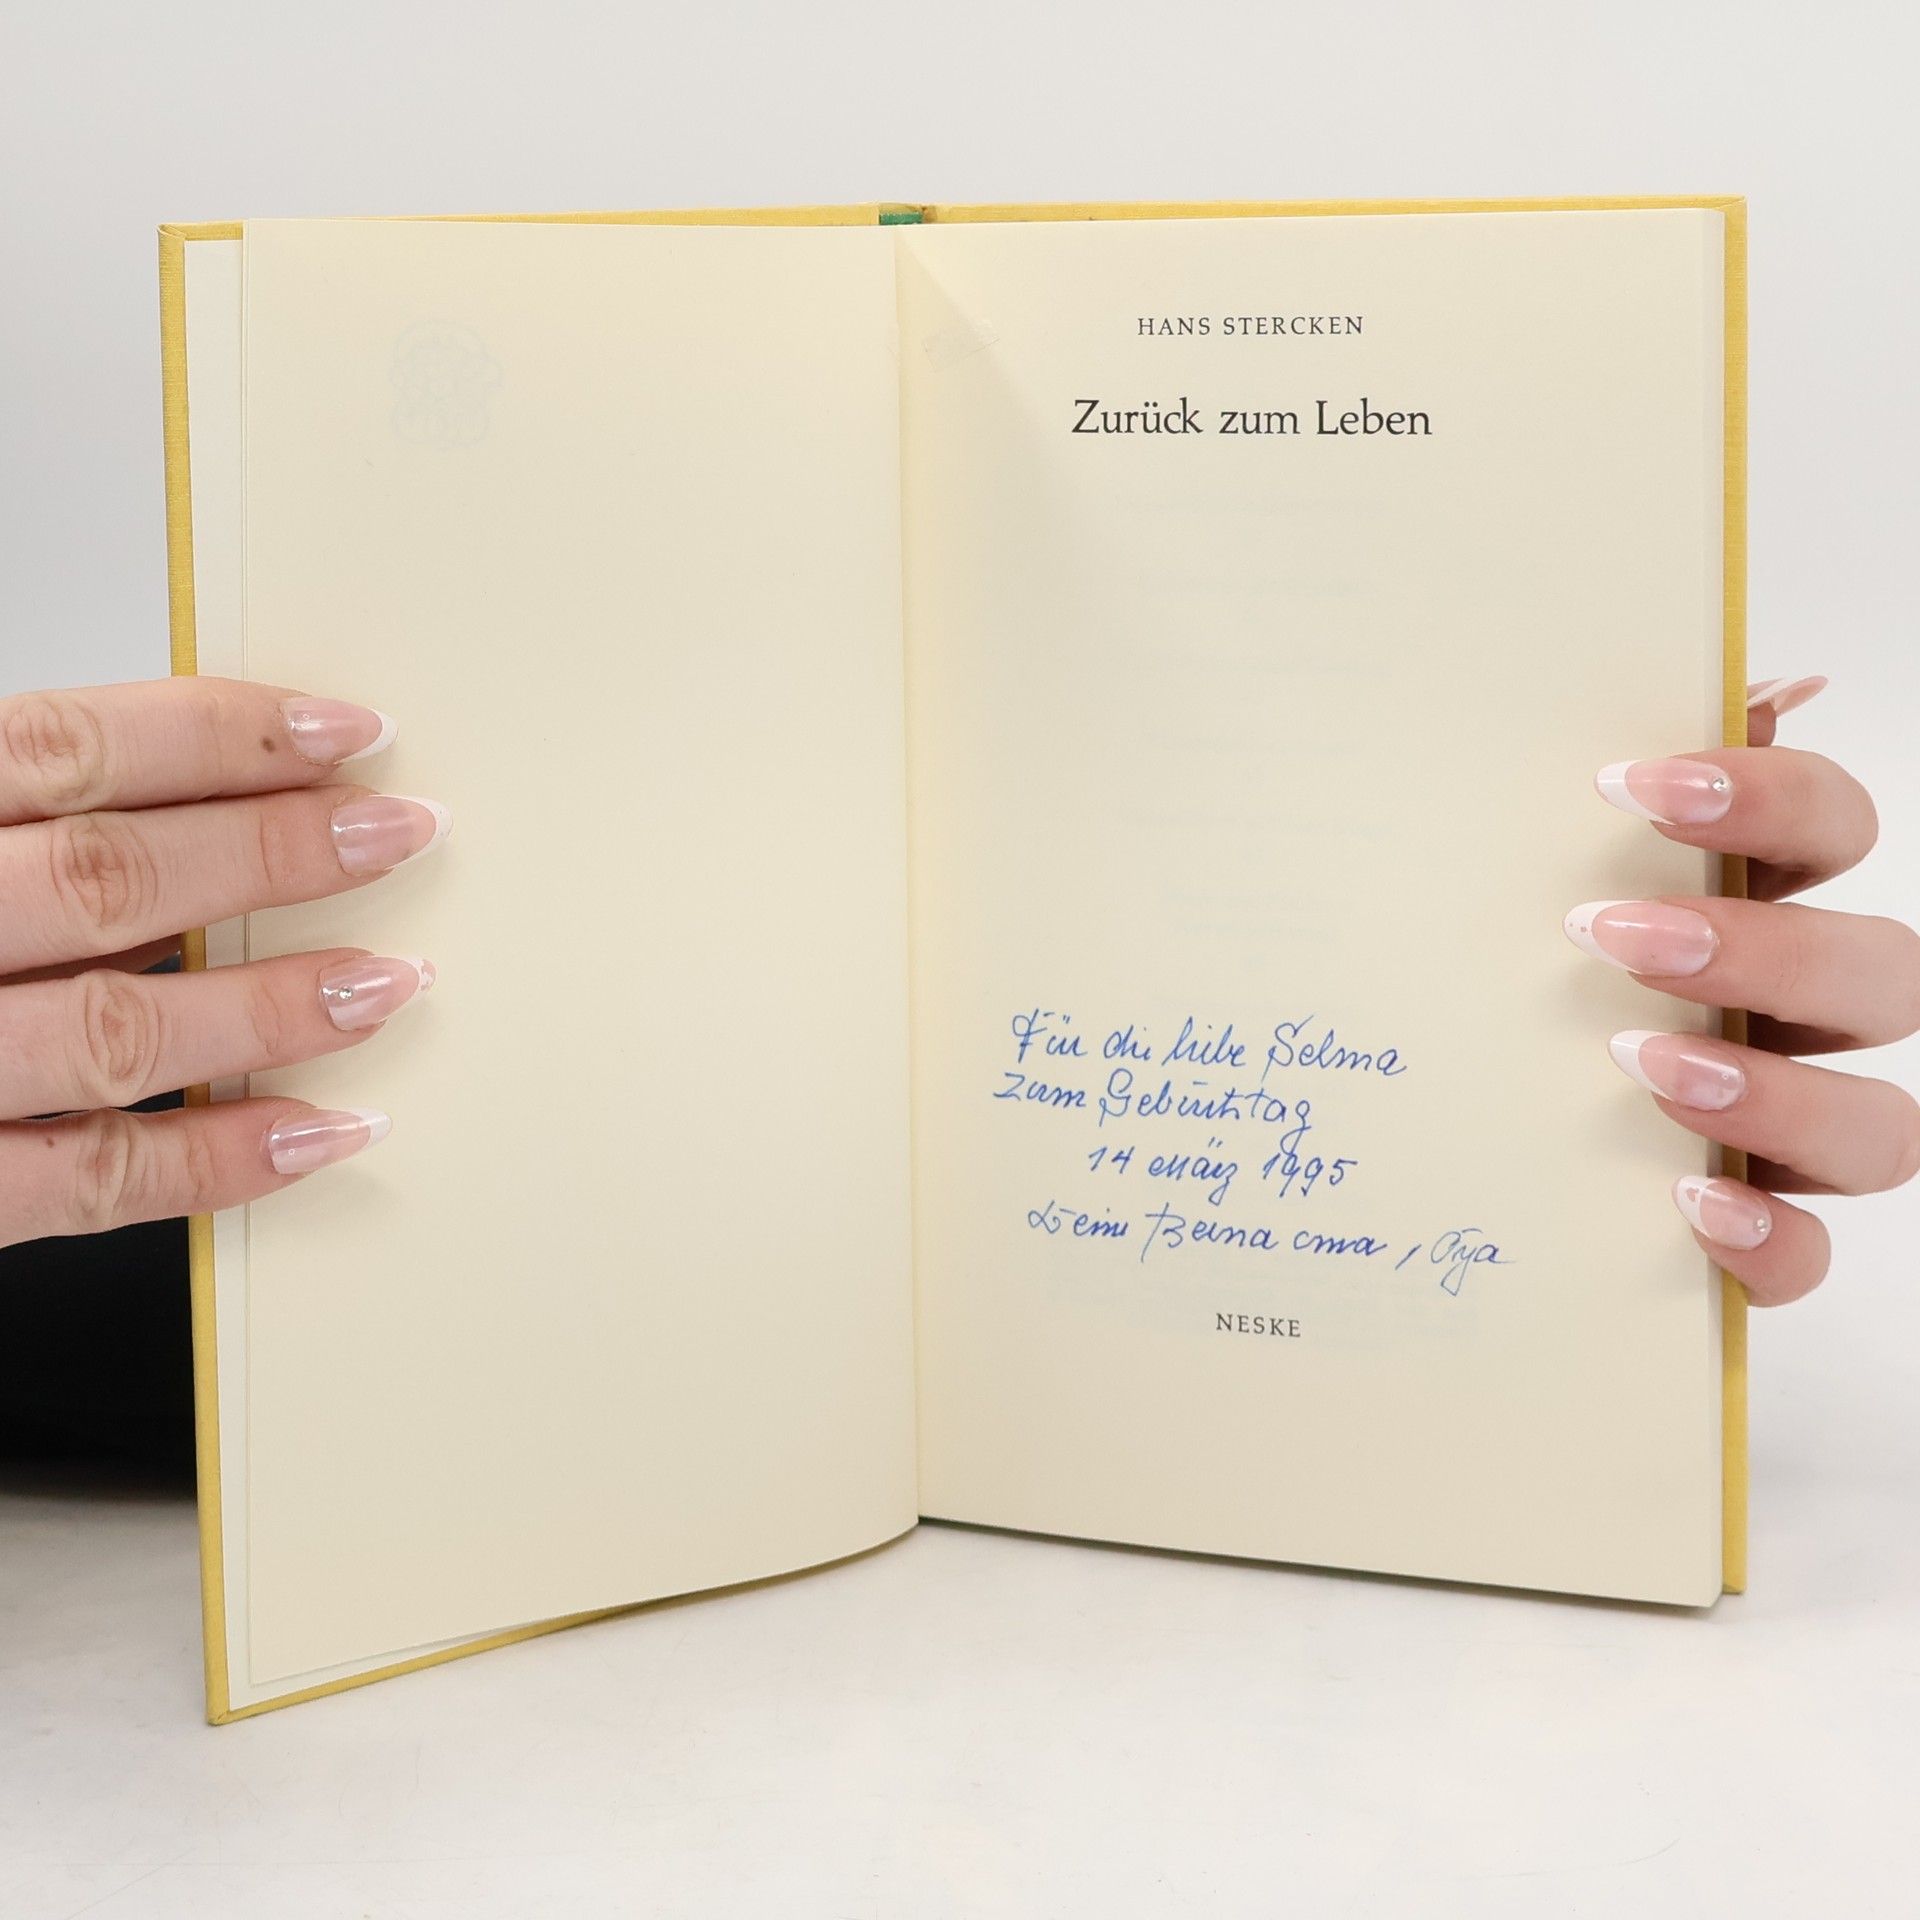 HANS STERCKEN
Zurück zum Leben
Für die liebe Selma
zum Geburtstag
14 März 1995
Deine
NESKE